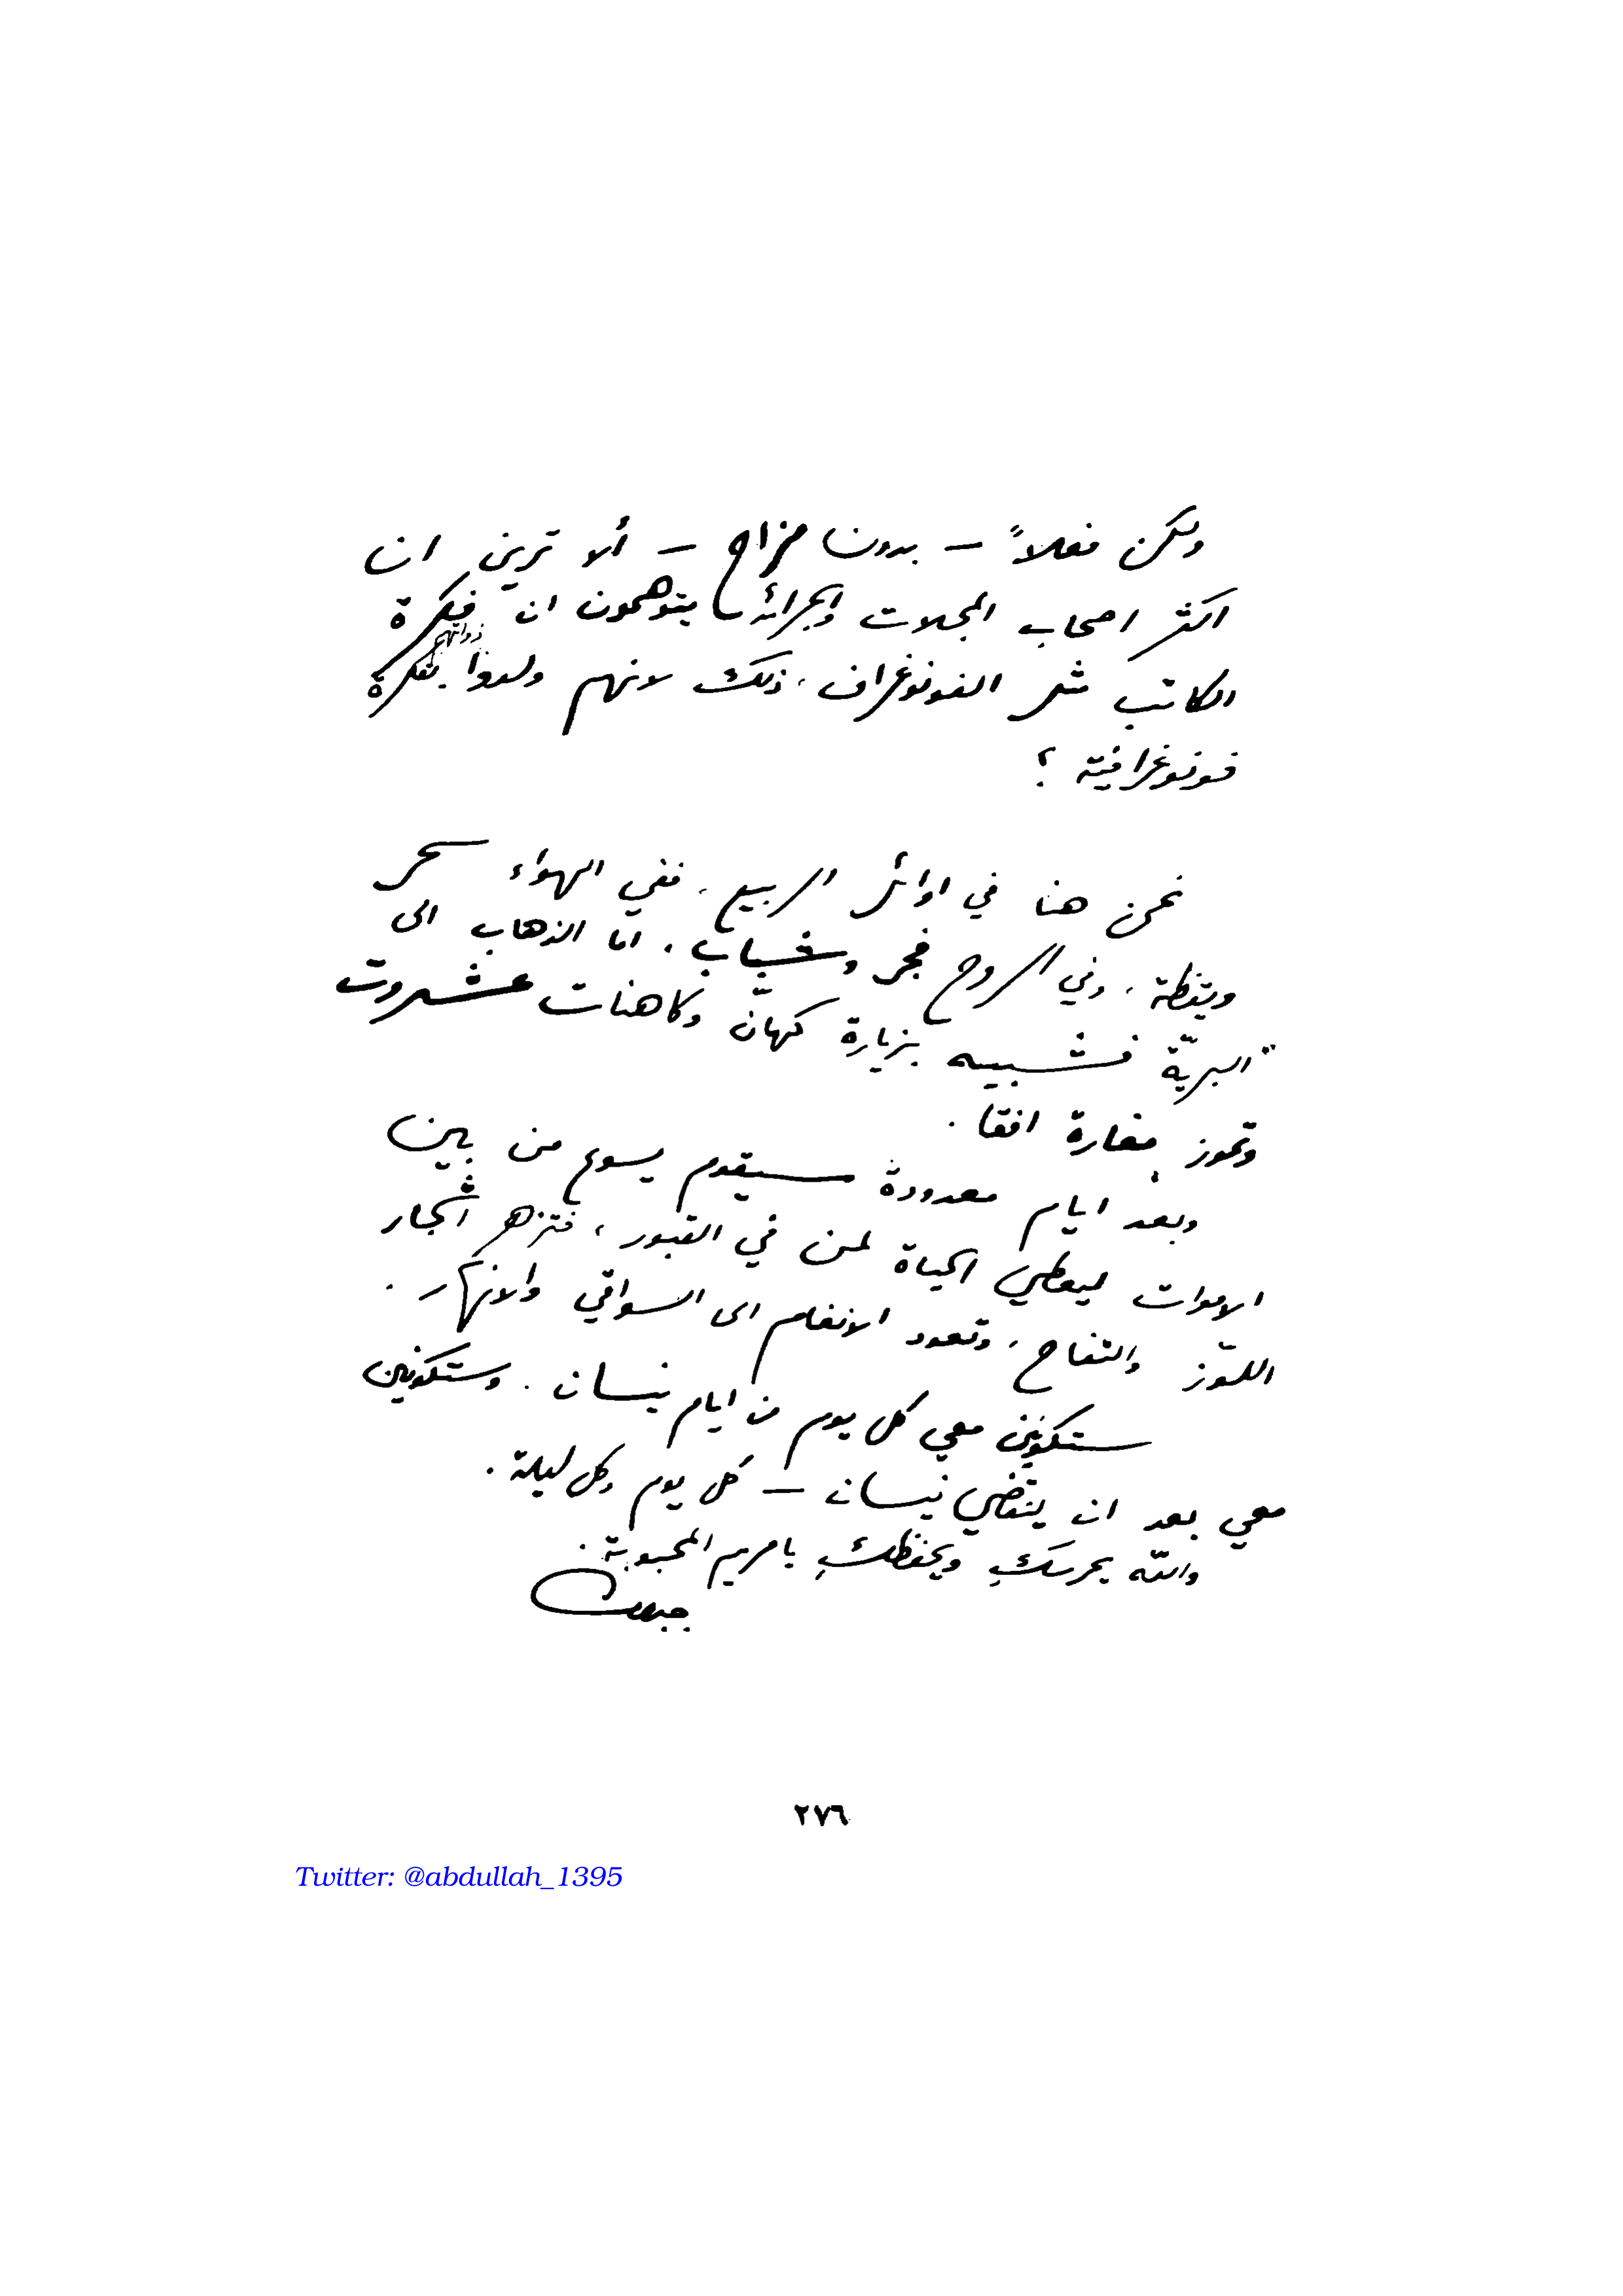 ولكن فعلاً — بدون مزاح — ألا ترين ان
اكثر اصحاب المجلات والجرائد يتوهمون ان فكرة
الكاتب مثل الفونوغراف، ذلك لانهم ذواتهم ولدوا بفكرة
فونوغرافية ؟
نحن هنا في اوائل الربيع، ففي الهواء سحر
ويقظة، وفي الروح فجر وشباب. امّا الذهاب الى
البريّة فشبيه بزيارة كهّان وكاهنات عشتروت
وتموز مغارة افقا.
وبعد ايام معدودة سيقوم يسوع من بين
الاموات ليعطي الحياة لمن في القبور، فتزهر أشجار
اللوّز والتفاح، وتعود الانغام الى السواقي والانهار.
ستكونين معي كل يوم من ايام نيسان. وستكونين
معي بعد ان ينقضي نيسان — كل يوم وكل ليلة.
والله يحرسكِ ويحفظكِ يا مريم المحبوبة.
جبران
٢٧٦
Twitter: @abdullah_1395